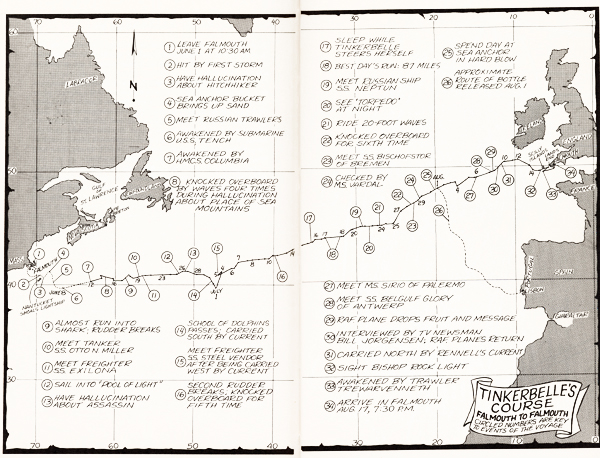 60
50
40
30
20
10
0
① LEAVE FALMOUTH
JUNE 1 AT 10:30 AM
② HIT BY FIRST STORM
③ HAVE HALLUCINATION
ABOUT HITCHHIKER
④ SEA ANCHOR BUCKET
BRINGS UP SAND
⑤ MEET RUSSIAN TRAWLERS
⑥ AWAKENED BY SUBMARINE
U.S.S. TENCH
⑦ AWAKENED BY
H.M.C.S. COLUMBIA
⑧ KNOCKED OVERBOARD
BY WAVES FOUR TIMES
DURING HALLUCINATION
ABOUT PLACE OF SEA
MOUNTAINS
⑰ SLEEP WHILE
TINKERBELLE
STEERS HERSELF
⑱ BEST DAY'S RUN: 87 MILES
⑲ MEET RUSSIAN SHIP
S.S. NEPTUN
⑳ SEE "TORPEDO"
AT NIGHT
㉑ RIDE 20-FOOT WAVES
㉒ KNOCKED OVERBOARD
FOR SIXTH TIME
㉓ MEET S.S. BISCHOFSTOR
OF BREMEN
㉔ CHECKED BY
M.S. VARDAL
㉕ SPEND DAY AT
SEA ANCHOR
IN HARD BLOW
㉖ APPROXIMATE
ROUTE OF BOTTLE
RELEASED AUG. 1
LABRADOR
GULF
ST. LAWRENCE
IRELAND
ENGLAND
FRANCE
SPAIN
PORTUGAL
LISBON
GIBRALTAR
MASS.
FALMOUTH
NANTUCKET
SHOALS LIGHTSHIP
JUNE
JULY
AUG.
⑨ ALMOST RUN INTO
SHARK; RUDDER BREAKS
⑩ MEET TANKER
S.S. OTTO N. MILLER
⑪ MEET FREIGHTER
S.S. EXILONA
⑫ SAIL INTO "POOL OF LIGHT"
⑬ HAVE HALLUCINATION
ABOUT ASSASSIN
⑭ SCHOOL OF DOLPHINS
PASSES; CARRIED
SOUTH BY CURRENT
⑮ MEET FREIGHTER
S.S. STEEL VENDOR
AFTER BEING CARRIED
WEST BY CURRENT
⑯ SECOND RUDDER
BREAKS, KNOCKED
OVERBOARD FOR
FIFTH TIME
㉗ MEET M.S. SIRIO OF PALERMO
㉘ MEET S.S. BELGULF GLORY
OF ANTWERP
㉙ RAF PLANE DROPS FRUIT AND MESSAGE
㉚ INTERVIEWED BY TV NEWSMAN
BILL JORGENSEN; RAF PLANES RETURN
㉛ CARRIED NORTH BY RENNELL'S CURRENT
㉜ SIGHT BISHOP ROCK LIGHT
㉝ AWAKENED BY TRAWLER
TREWARVENNETH
㉞ ARRIVE IN FALMOUTH
AUG. 17, 7:30 P.M.
TINKERBELLE'S
COURSE
FALMOUTH TO FALMOUTH
CIRCLED NUMBERS ARE KEY
TO EVENTS OF THE VOYAGE
70
60
50
40
30
20
10
0